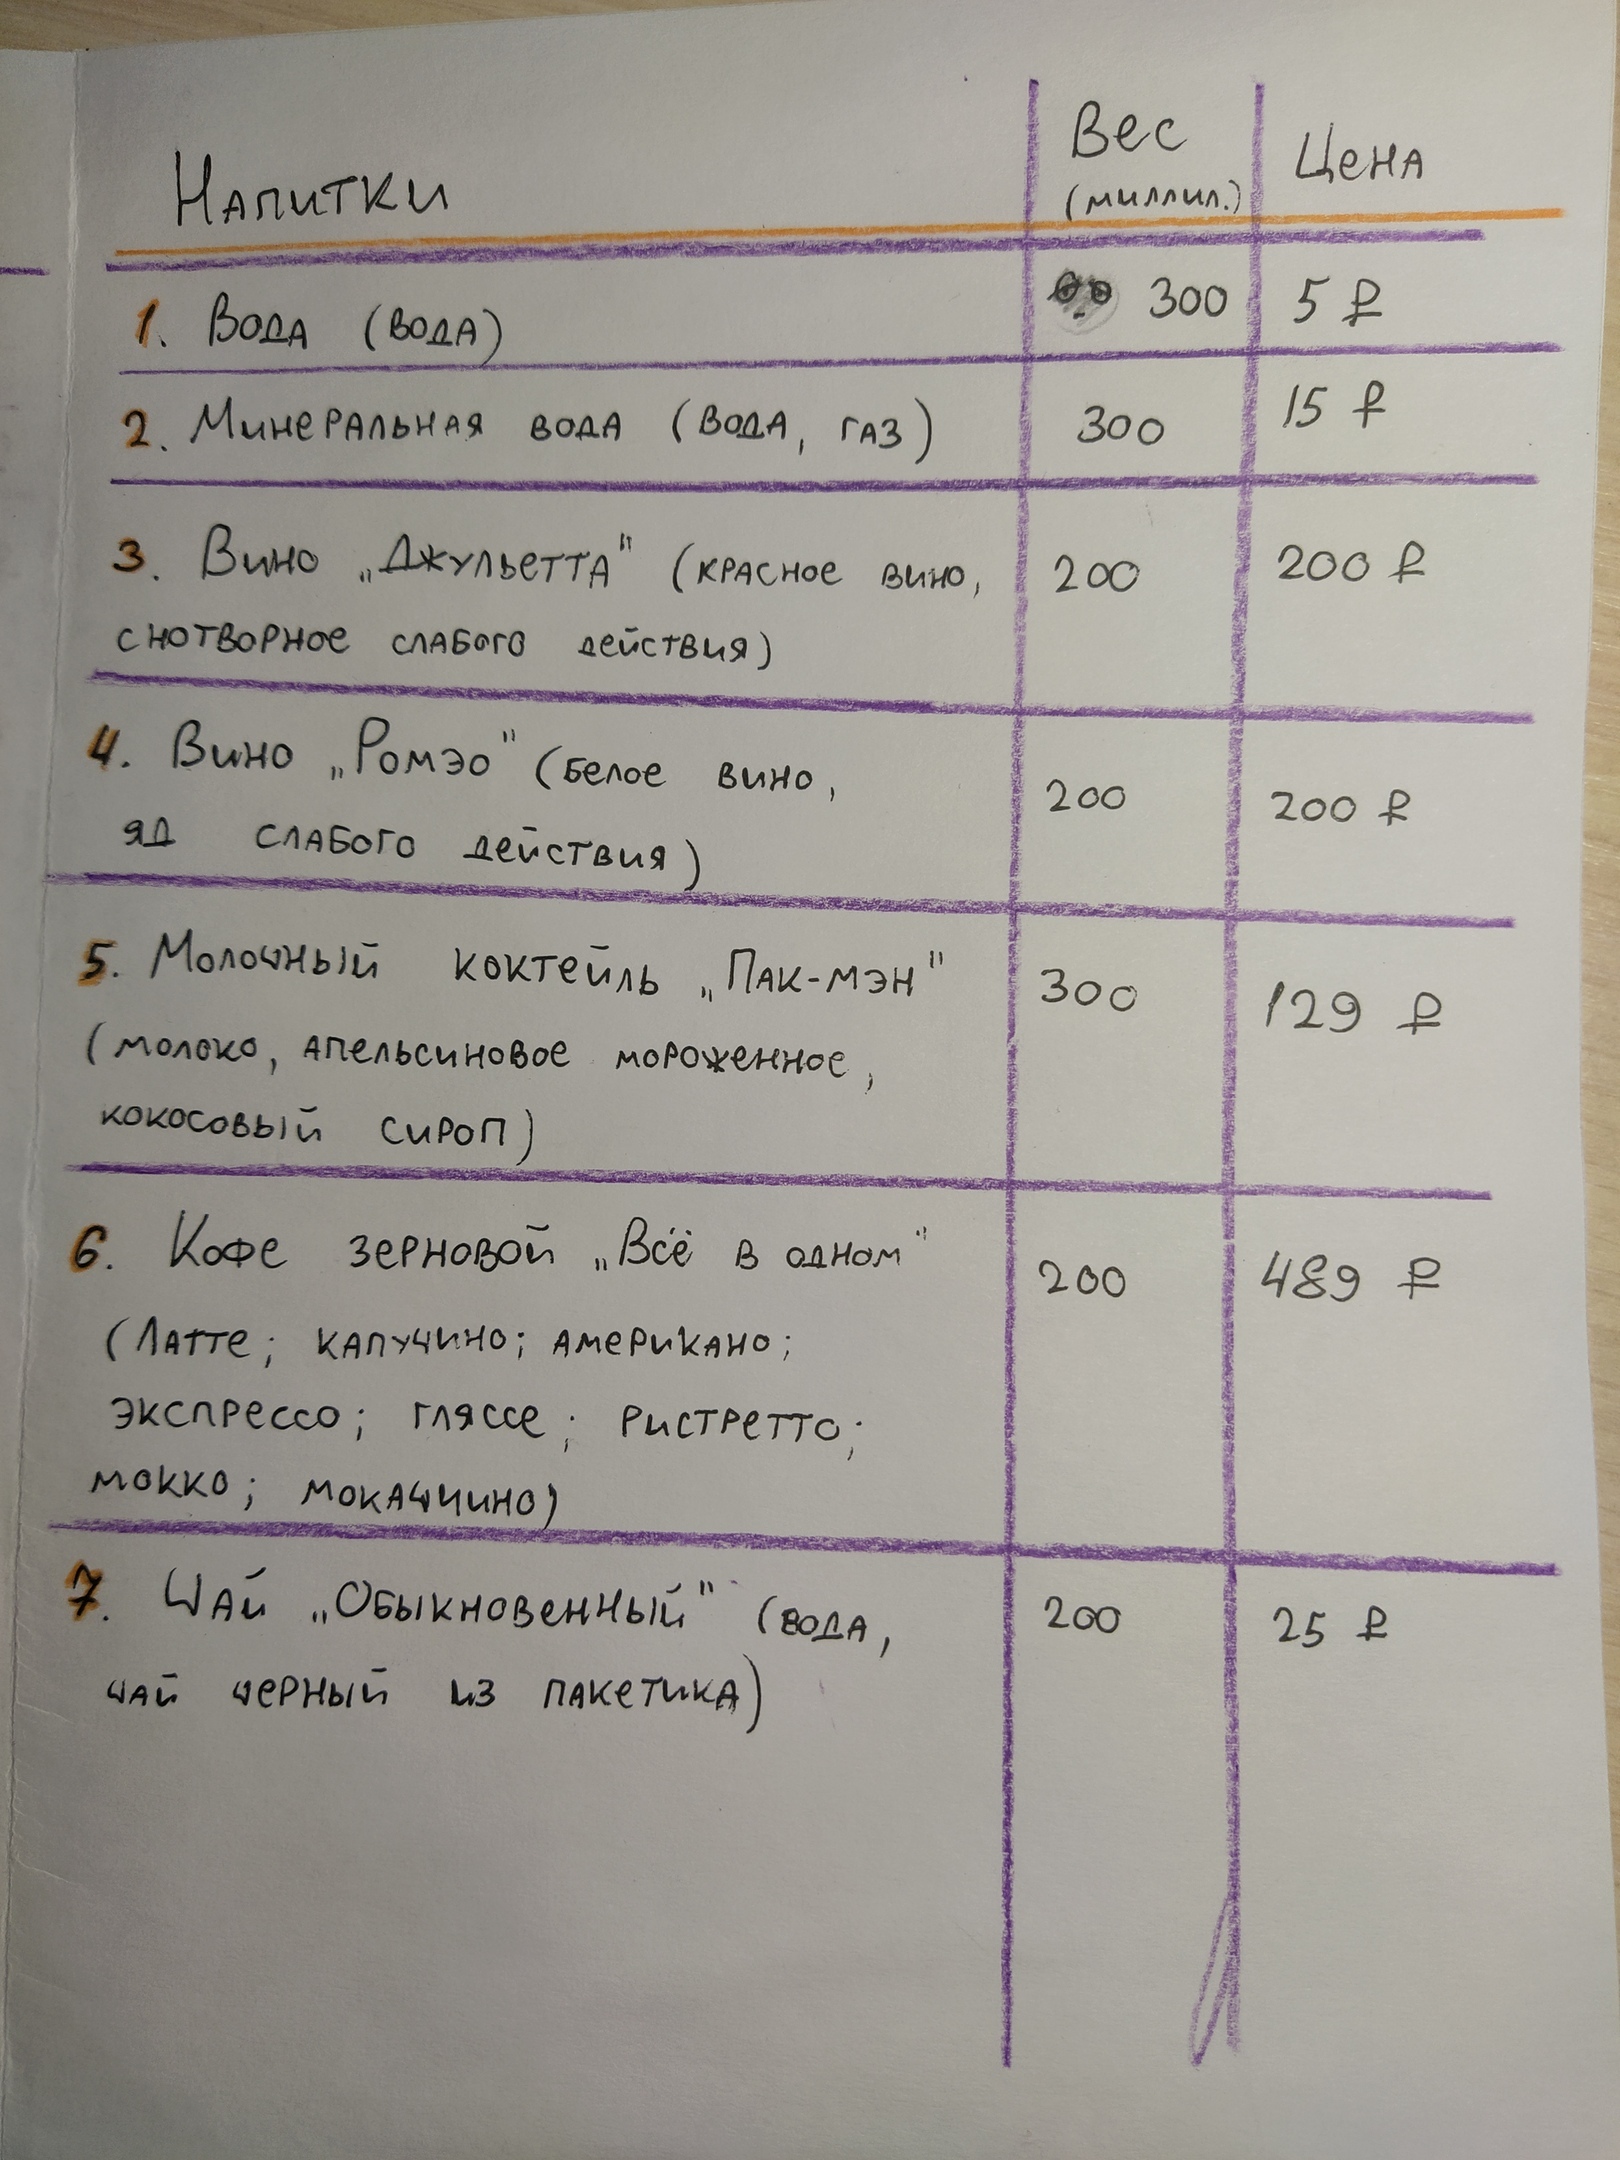 Напитки Вес Цена
(миллил.)
1. Вода (вода) 300 5 ₽
2. Минеральная вода (вода, газ) 300 15 ₽
3. Вино „Джульетта" (красное вино, 200 200 ₽
снотворное слабого действия)
4. Вино „Ромэо" (белое вино, 200 200 ₽
яд слабого действия)
5. Молочный коктейль „Пак-мэн" 300 129 ₽
(молоко, апельсиновое мороженное,
кокосовый сироп)
6. Кофе зерновой „Всё в одном" 200 489 ₽
(Латте; капучино; американо;
экспрессо; гляссе; ристретто;
мокко; мокаччино)
7. Чай „Обыкновенный" (вода, 200 25 ₽
чай черный из пакетика)